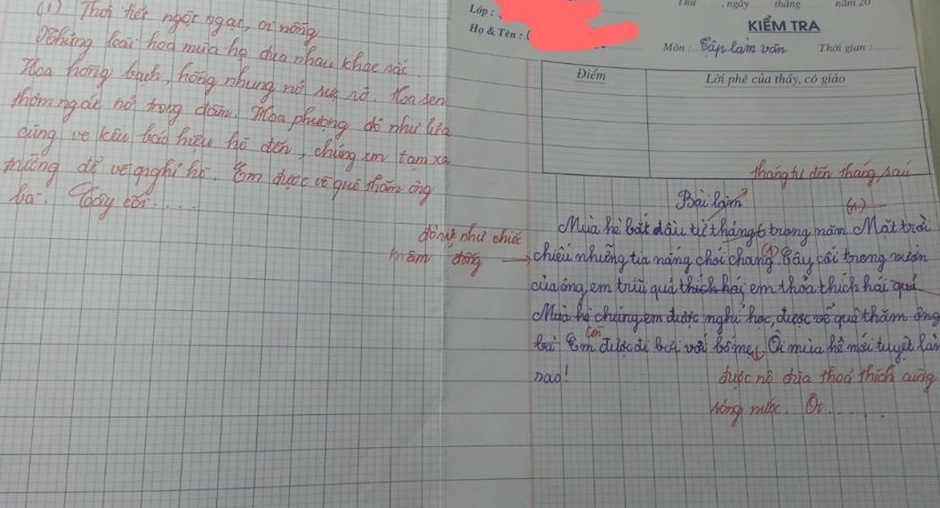 (1) Thời tiết ngột ngạt, oi nồng
Những loài hoa mùa hạ đua nhau khoe sắc.
Hoa hồng bạch, hồng nhung nở rực rỡ. Hoa sen
thơm ngát nở trong đầm. Hoa phượng đỏ như lửa
cùng ve kêu báo hiệu hè đến, chúng em tạm xa
trường để về nghỉ hè. Em được về quê thăm ông
bà. Cây cối.....
Lớp :
Họ & Tên :
Thứ , ngày tháng năm 20
KIỂM TRA
Môn : Tập làm văn Thời gian :
Điểm Lời phê của thầy, cô giáo
tháng tư đến tháng sáu
Bài làm (1)
Mùa hè bắt đầu từ tháng 6 trong năm. Mặt trời
đỏ rực như chiếc
mâm đồng
chiếu những tia nắng chói chang (1) Cây cối trong vườn
của ông em trĩu quả thích hái em thỏa thích hái quả
Mùa hè chúng em được nghỉ học, được về quê thăm ông
bà. Em còn được đi bơi với bố mẹ. Ôi mùa hè mới tuyệt làm
sao!
được nô đùa thoả thích cùng
sóng nước. Ôi.....